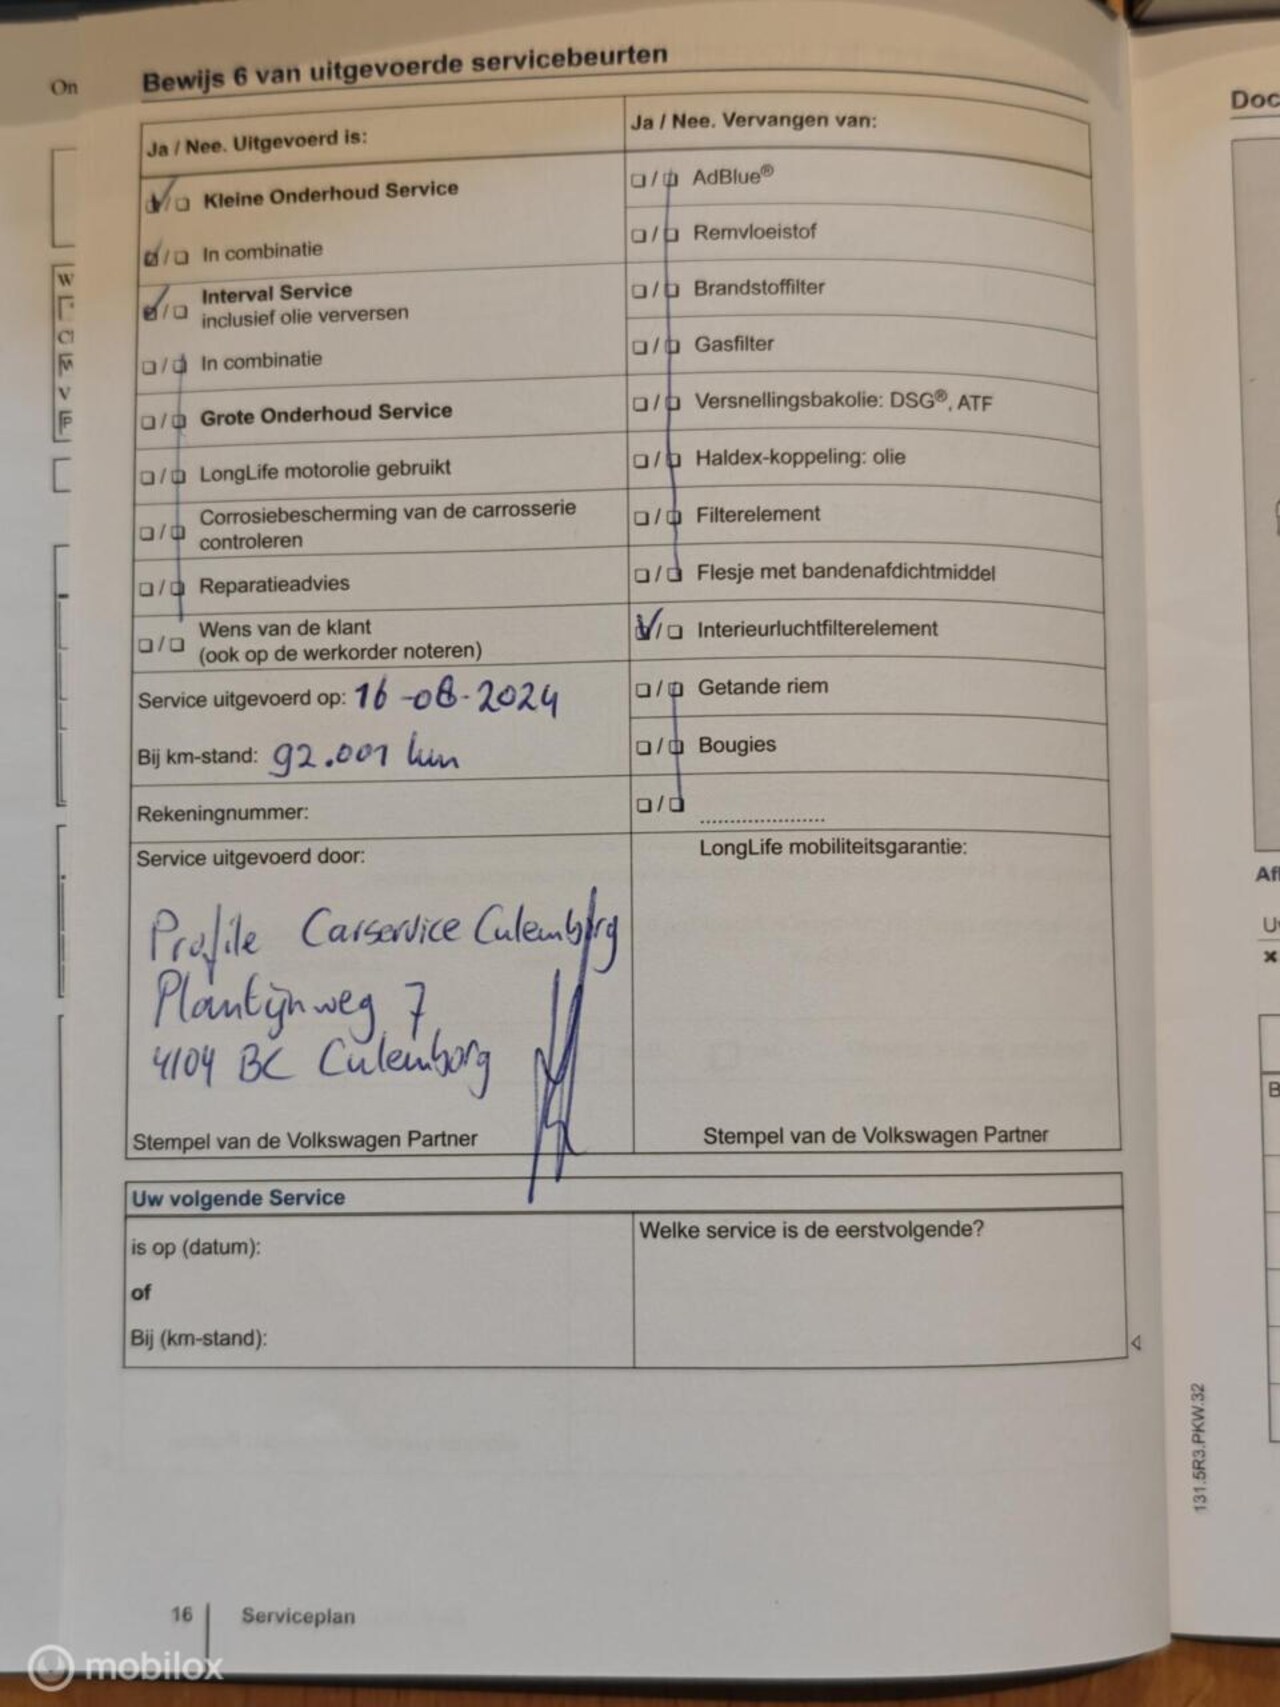 On
Bewijs 6 van uitgevoerde servicebeurten
Doc
Ja / Nee. Uitgevoerd is:
Kleine Onderhoud Service
In combinatie
Interval Service
inclusief olie verversen
In combinatie
Grote Onderhoud Service
LongLife motorolie gebruikt
Corrosiebescherming van de carrosserie
controleren
Reparatieadvies
Wens van de klant
(ook op de werkorder noteren)
Service uitgevoerd op: 16-08-2024
Bij km-stand: 92.001 km
Rekeningnummer:
Service uitgevoerd door:
Profile Carservice Culemborg
Plantijnweg 7
4104 BC Culemborg
Stempel van de Volkswagen Partner
Ja / Nee. Vervangen van:
AdBlue®
Remvloeistof
Brandstoffilter
Gasfilter
Versnellingsbakolie: DSG®, ATF
Haldex-koppeling: olie
Filterelement
Flesje met bandenafdichtmiddel
Interieurluchtfilterelement
Getande riem
Bougies
....................
LongLife mobiliteitsgarantie:
Stempel van de Volkswagen Partner
Uw volgende Service
is op (datum):
of
Bij (km-stand):
Welke service is de eerstvolgende?
131.5R3.PKW.32
16 Serviceplan
mobilox